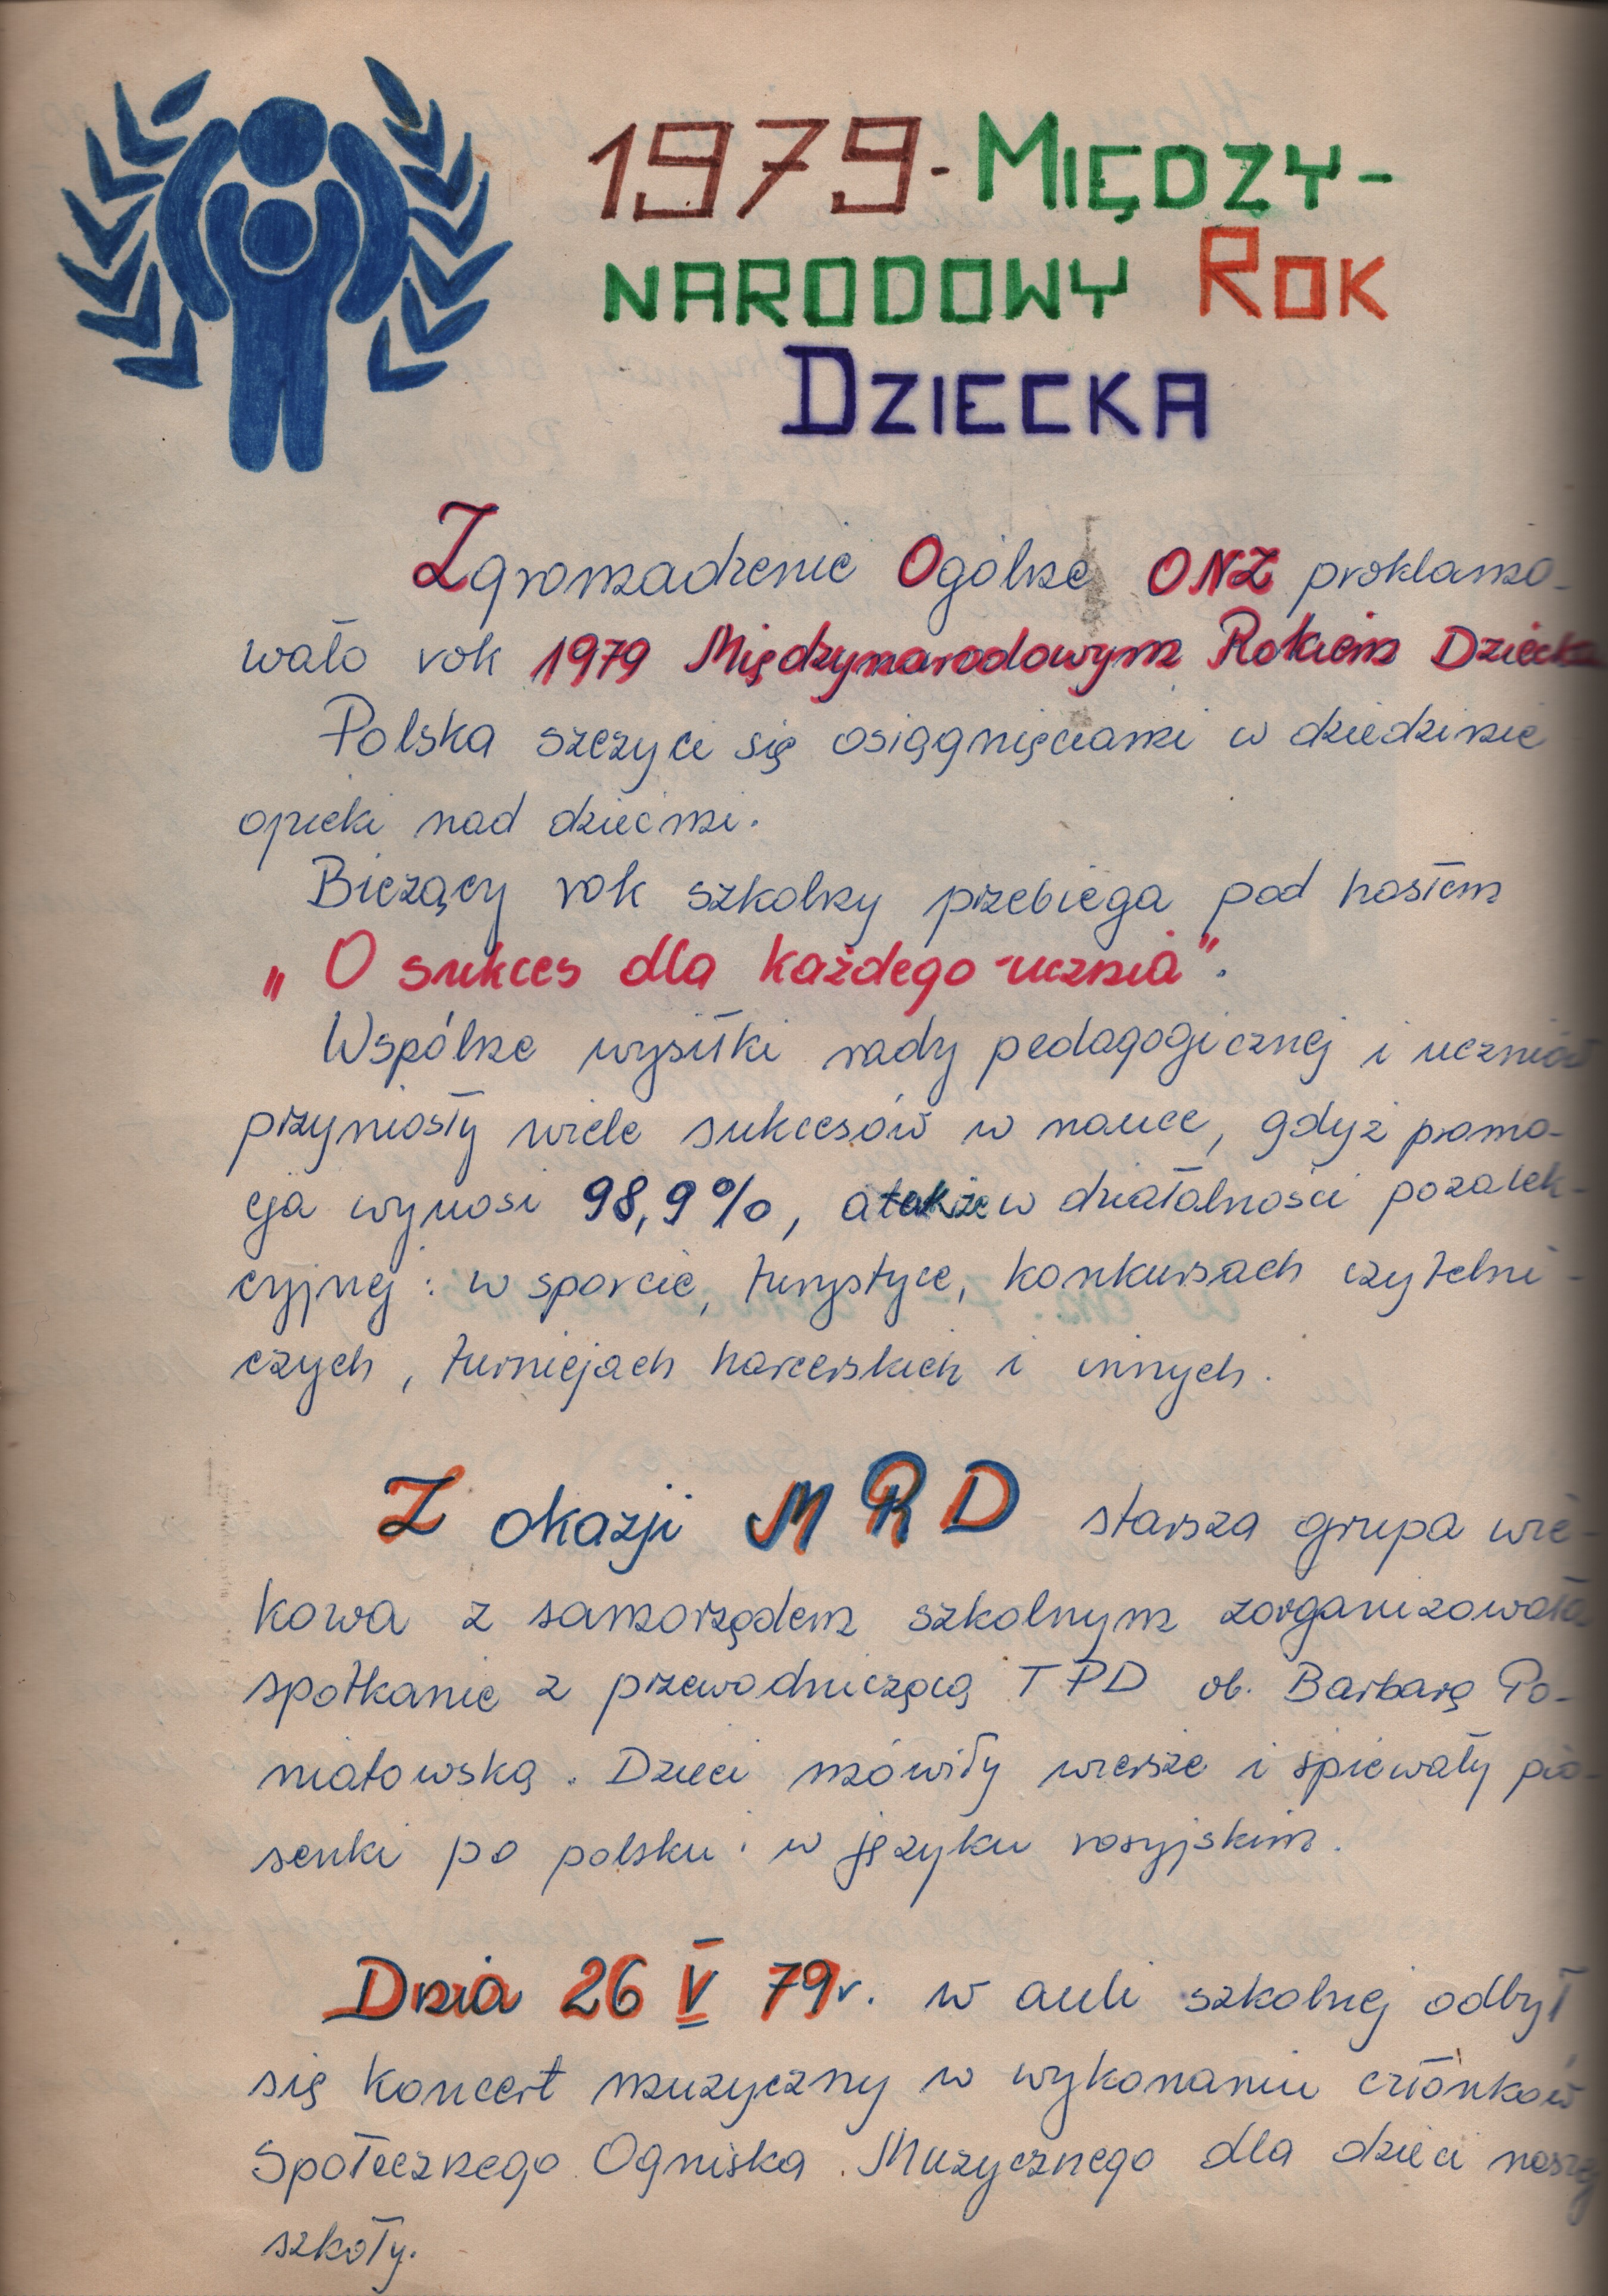 1979 - MIĘDZY-
NARODOWY ROK
DZIECKA
Zgromadzenie Ogólne ONZ proklamo-
wało rok 1979 Międzynarodowym Rokiem Dziecka
Polska szczyci się osiągnięciami w dziedzinie
opieki nad dziećmi.
Bieżący rok szkolny przebiega pod hasłem
„O sukces dla każdego ucznia".
Wspólne wysiłki rady pedagogicznej i uczniów
przyniosły wiele sukcesów w nauce, gdyż promo-
cja wynosi 98,9%, a także w działalności pozalek-
cyjnej: w sporcie, turystyce, konkursach czytelni-
czych, turniejach harcerskich i innych.
Z okazji MRD starsza grupa wie-
kowa z samorządem szkolnym zorganizowała
spotkanie z przewodniczącą TPD ob. Barbarą Po-
niatowską. Dzieci mówiły wiersze i śpiewały pio-
senki po polsku i w języku rosyjskim.
Dnia 26 V 79r. w auli szkolnej odbył
się koncert muzyczny w wykonaniu członków
Społecznego Ogniska Muzycznego dla dzieci naszej
szkoły.